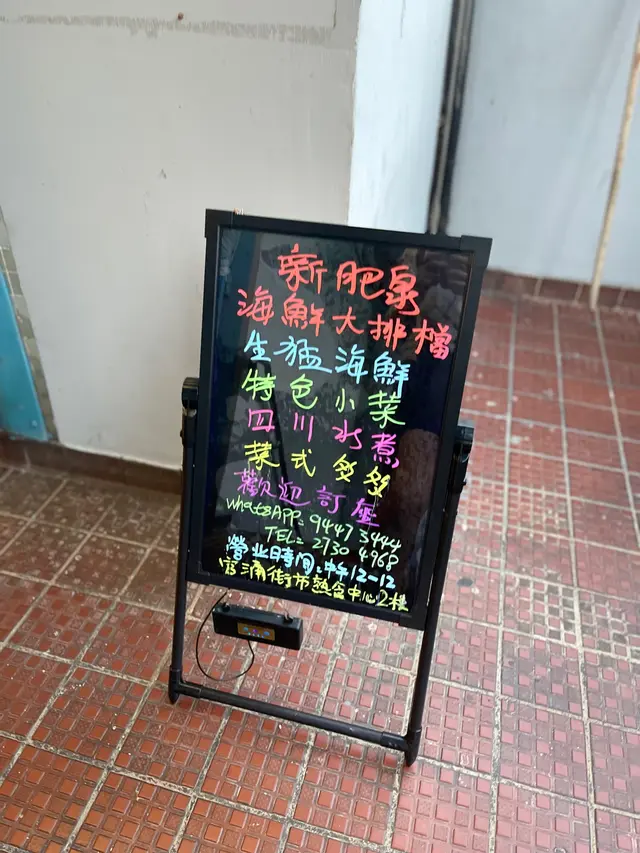 新肥泉
海鮮大排檔
生猛海鮮
特色小菜
四川水煮
菜式多多
歡迎訂座
WhatsAPP= 9447 3444
TEL= 2730 4968
營业日時間:中午12-12
官涌街市熟食中心2樓